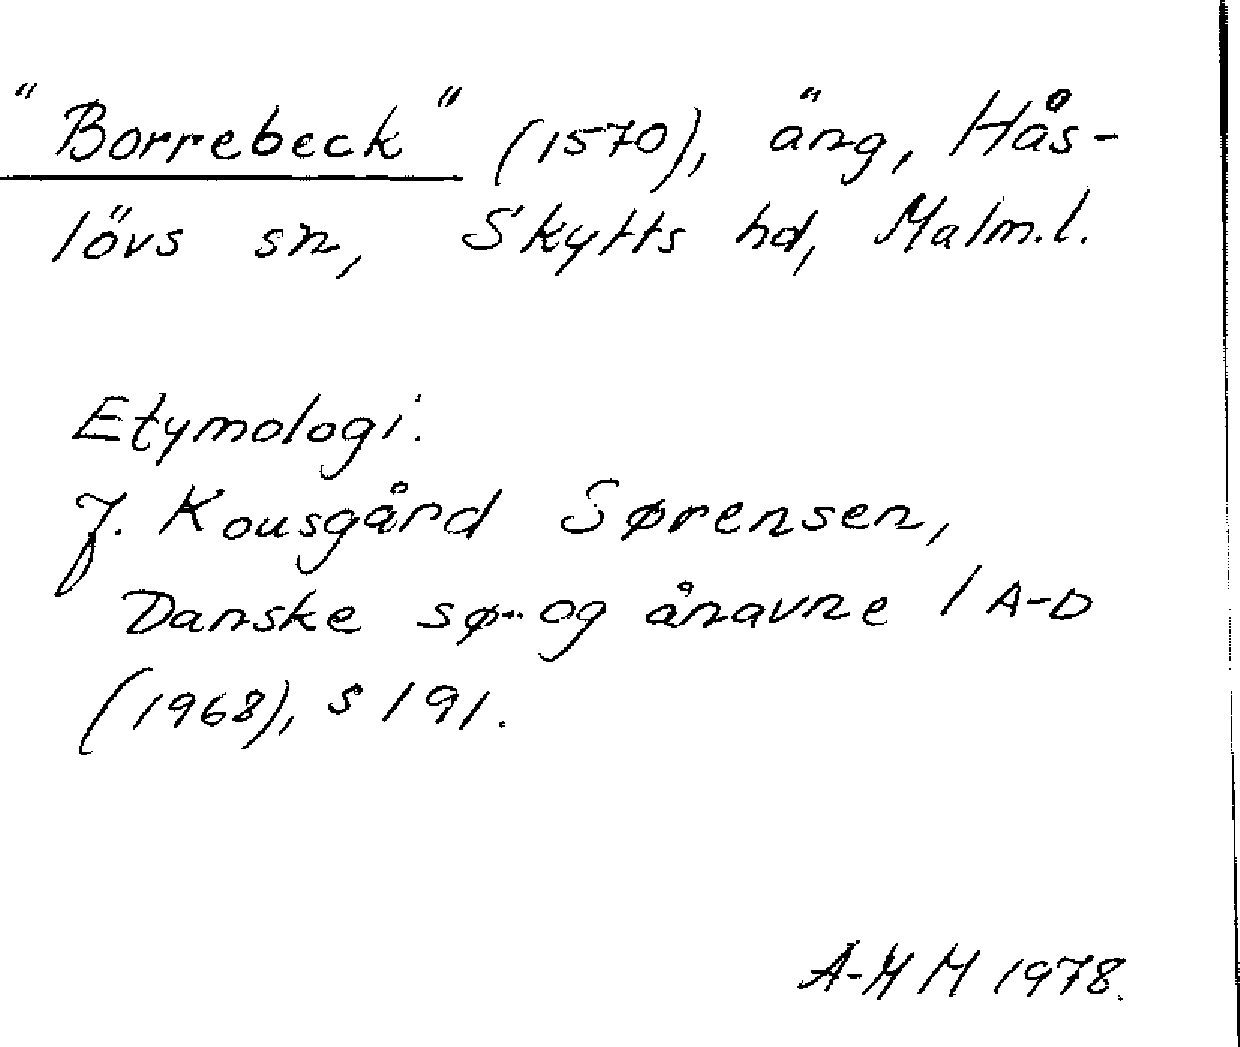 "Borrebeck" (1570), äng, Hås-
lövs sn, Skytts hd, Malm.l.
Etymologi:
J. Kousgård Sørensen,
Danske sø- og ånavne 1 A-D
(1968), s 191.
A-M M 1978.